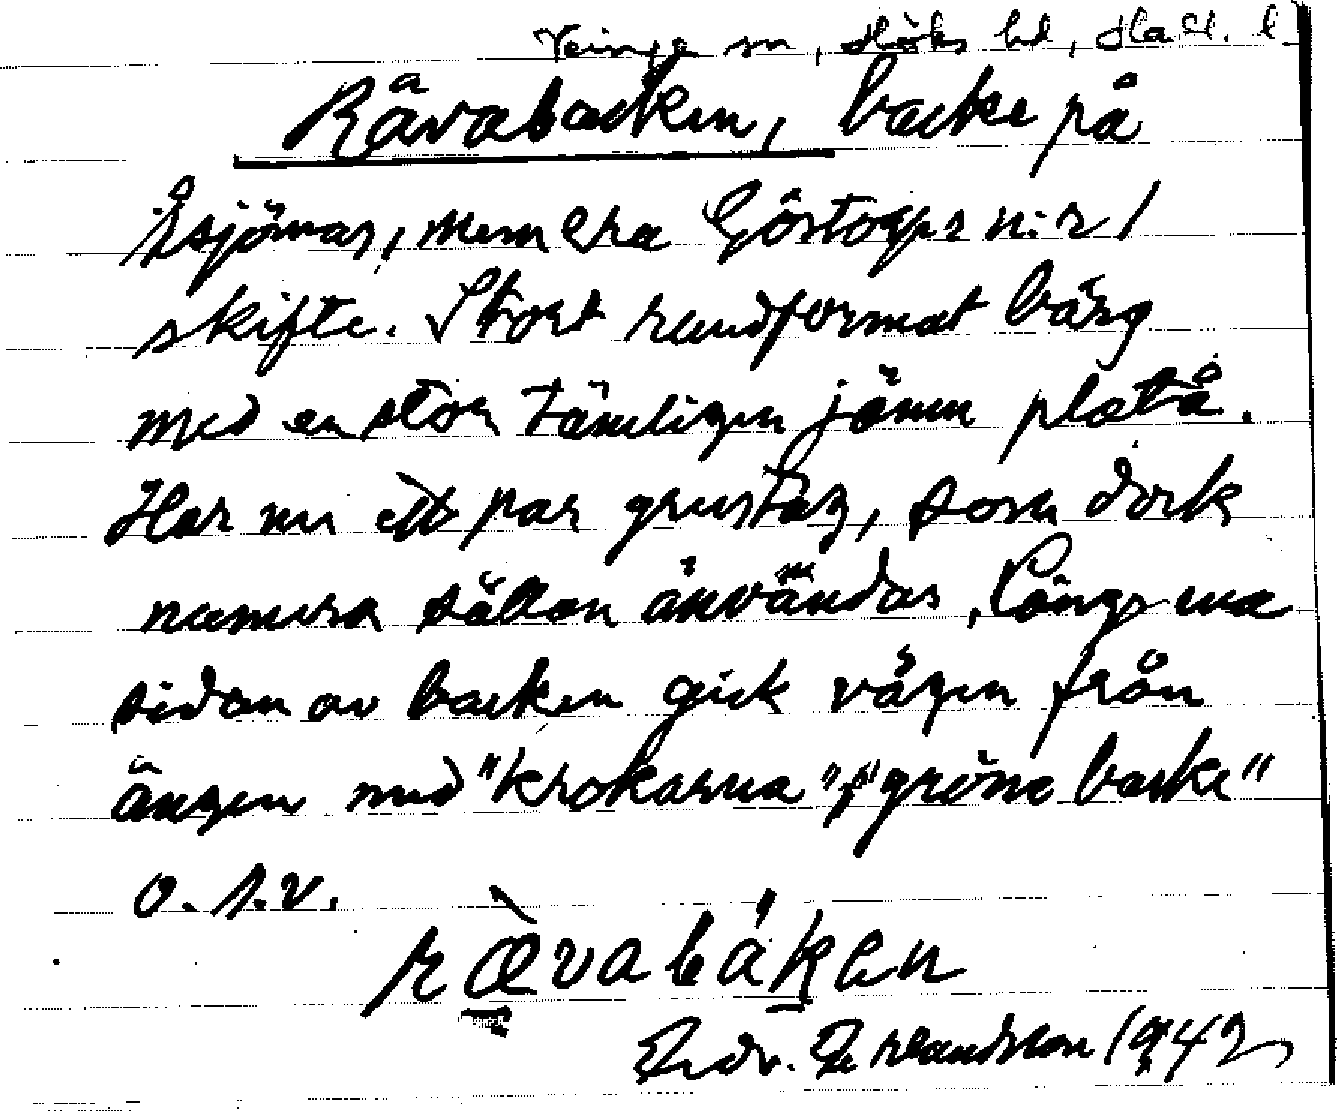 Veinge sn, Höks hd, Hall. l
Rävabacken, backe på
Esjömar, mem Lra Göstorps n:r 1
skifte. Stort rundformat bärg
med en stor tämligen jämn platå.
Har nu ett par grustag, som dock
numera sällan användas, Längs ena
sidan av backen gick vägen från
ängen med "Krokarna", "gröne backe"
o. s. v.
rævabáken
Edv. Erlandsson 1942